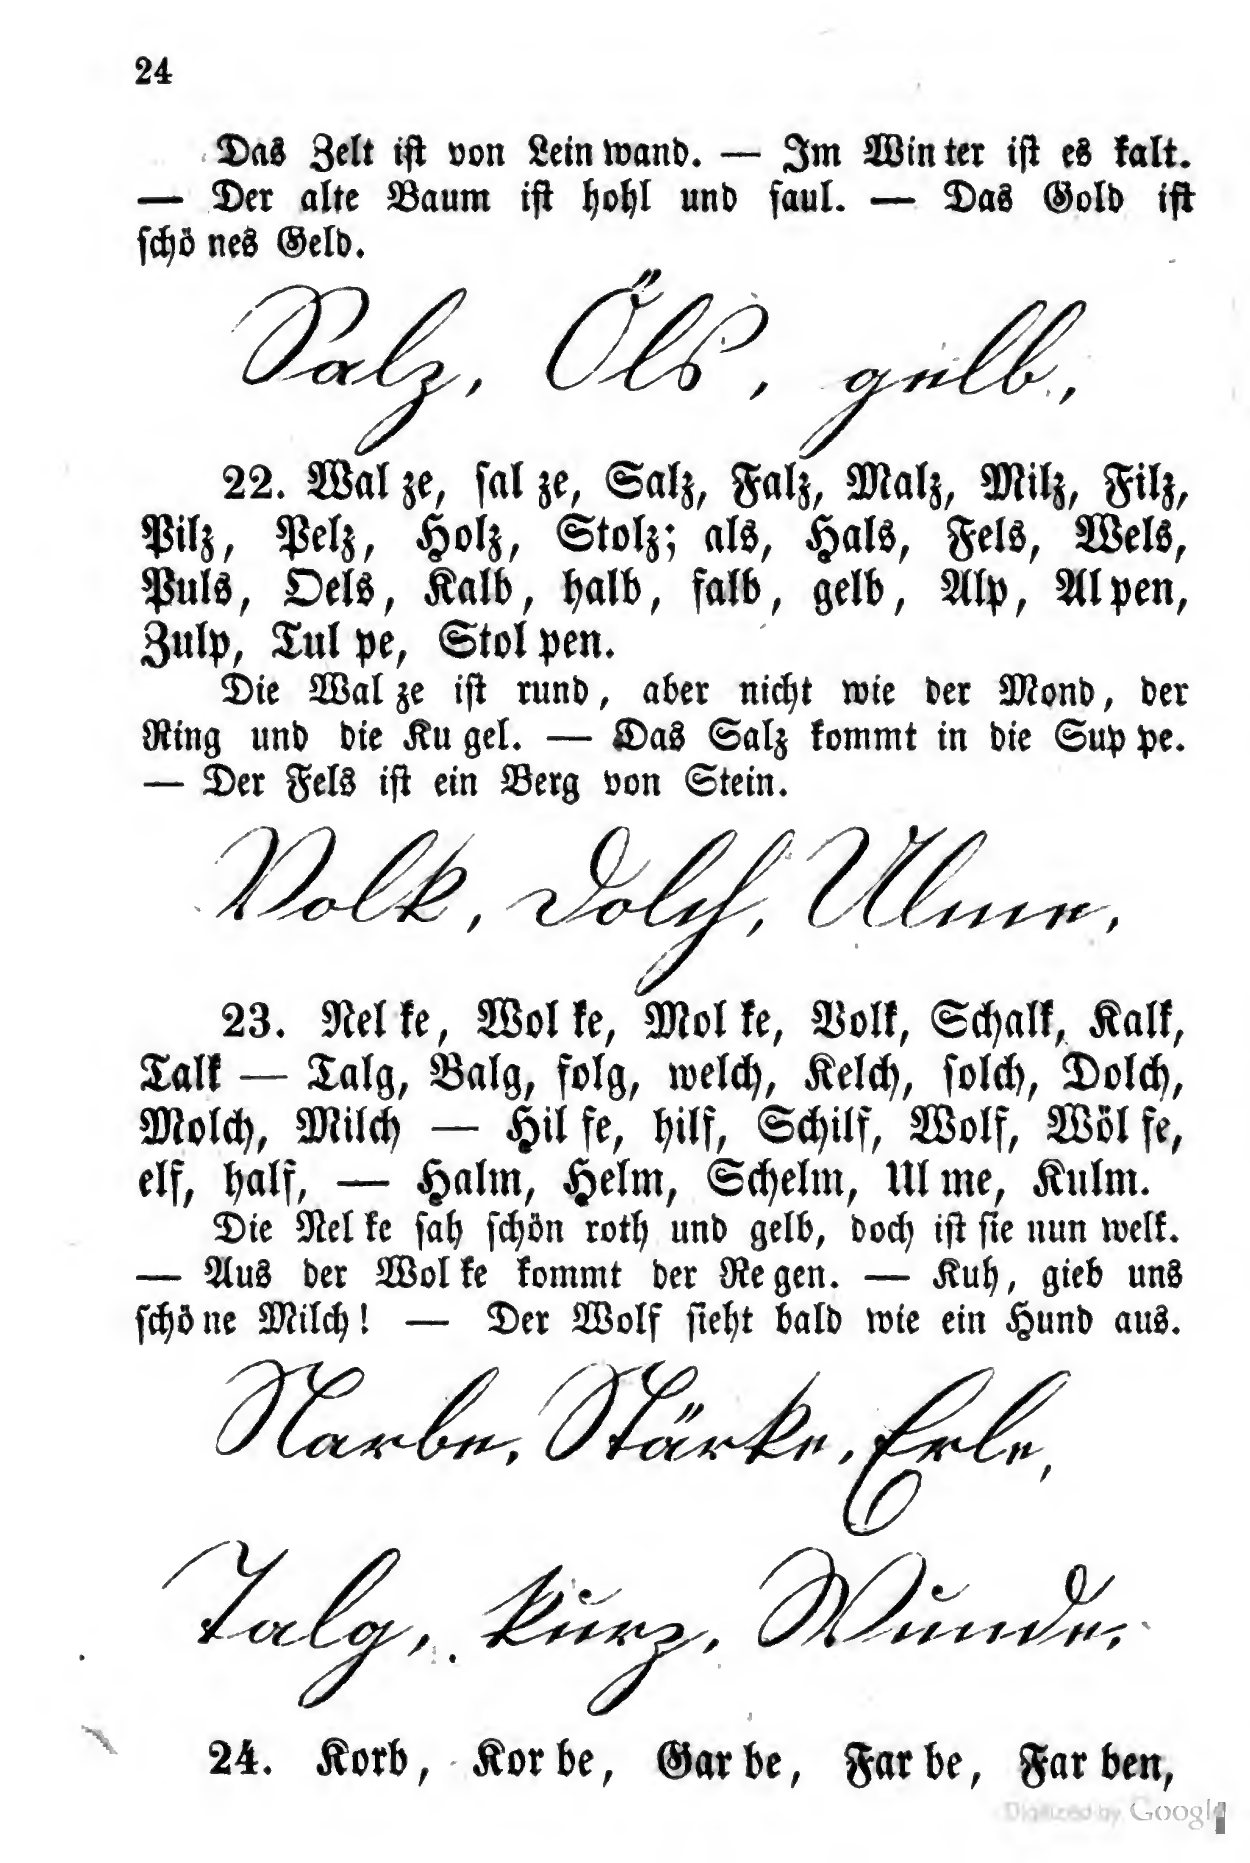 24
Das Zelt ist von Lein wand. — Im Win ter ist es kalt.
— Der alte Baum ist hohl und faul. — Das Gold ist
schö nes Geld.
Salz, Öls, gelb,
22. Wal ze, fal ze, Salz, Falz, Malz, Milz, Filz,
Pilz, Pelz, Holz, Stolz; als, Hals, Fels, Wels,
Puls, Oels, Kalb, halb, falb, gelb, Alp, Al pen,
Zulp, Tul pe, Stol pen.
Die Wal ze ist rund, aber nicht wie der Mond, der
Ring und die Ku gel. — Das Salz kommt in die Sup pe.
— Der Fels ist ein Berg von Stein.
Volk, Dolch, Ulme,
23. Nel ke, Wol ke, Mol ke, Volk, Schalk, Kalk,
Talk — Talg, Balg, folg, welch, Kelch, solch, Dolch,
Molch, Milch — Hil fe, hilf, Schilf, Wolf, Wöl fe,
elf, half, — Halm, Helm, Schelm, Ul me, Kulm.
Die Nel ke sah schön roth und gelb, doch ist sie nun welk.
— Aus der Wol ke kommt der Re gen. — Kuh, gieb uns
schö ne Milch! — Der Wolf sieht bald wie ein Hund aus.
Narbe, Stärke, Erle,
Talg, kurz, Wunde,
24. Korb, Kor be, Gar be, Far be, Far ben,
Digitized by Google